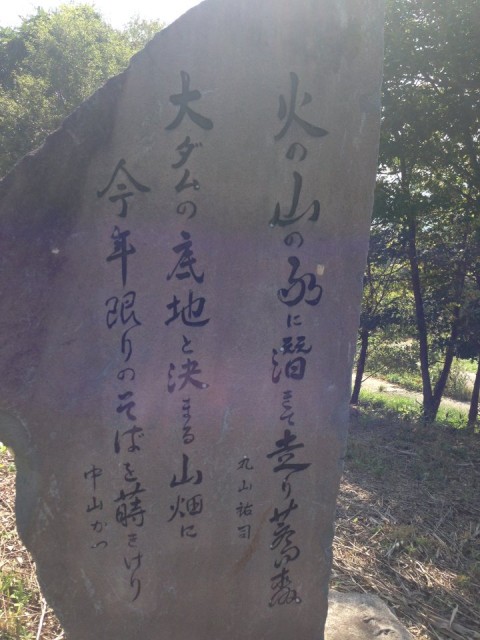 火の山の に潜 て走り蕎麦
丸山祐司
大ダムの底地と決まる山畑に
今年限りのそばを蒔きけり
中山かつ